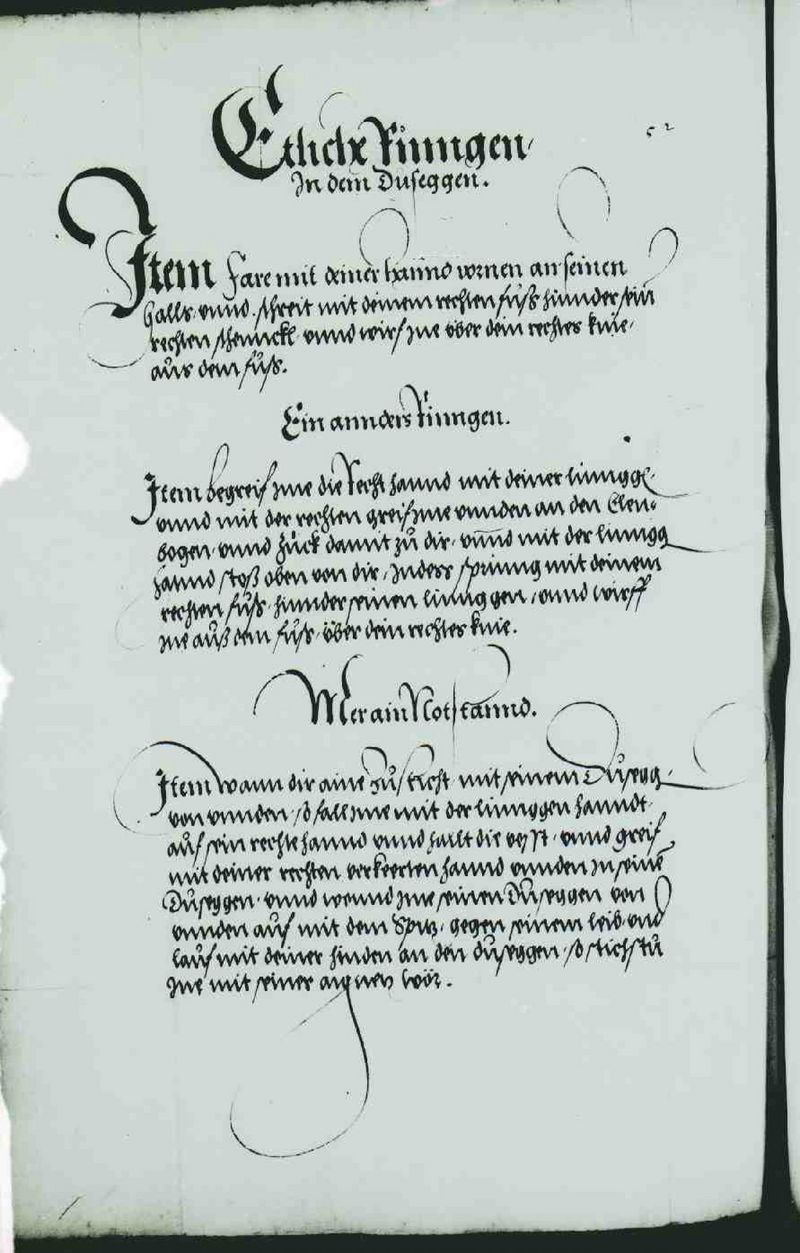 Etliche Ringen
52
In dem Duseggen.
Item fare mit deiner hannd vornen an seinen
halls vnnd schreit mit deinem rechten fůß hinnder sein
rechten schennckl vnnd wirf jne vber dein rechtes knie
aus dem fůß.
Ein annders Ringen.
Item begreif jme die Recht hannd mit deiner linngg
vnnd mit der rechten greif jme vnnden an den Elen
bogen vnnd zůck damit zů dir vnnd mit der lingg
hannd stoß oben von dir, Indess spring mit deinem
rechten fůß hinnder seinen linnggen, vnnd wirff
jne auß dem fůß vber dein rechtes knie.
Mer ain Notstannd.
Item wann dir ainer zůsticht mit seinem Dusegg
von vnnden so fall jme mit der linnggen hanndt
auf sein rechte hannd vnnd halt die vest vnnd greif
mit deiner rechten verkeerten hannd vnnden in seinē
Dusseggen vnnd wennd jme seinen Dusseggen von
vnnden auf mit dem Spitz gegen seinem leib vnd
lauf mit deiner hinden an den dusseggen so stichstů
jne mit seiner aignen wör.